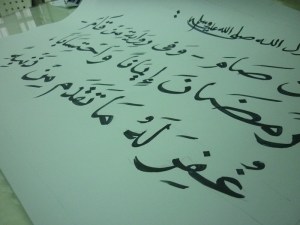 الله صلى الله عليه وسلم :
صام - وفي رواية من قام -
رمضان إيمانا واحتسابا
غُفِرَ لَهُ مَا تَقَدَّمَ مِنْ ذنبه